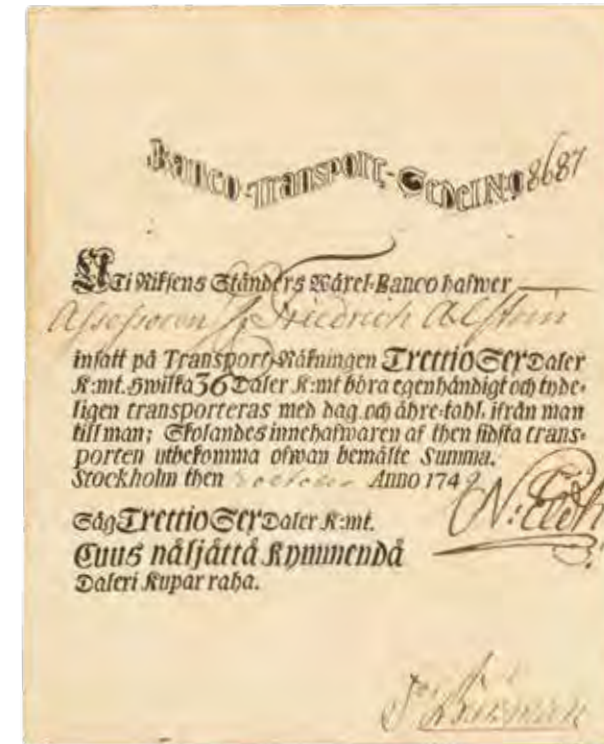 Banco-Transport-Sedel N:o 8687
Uti Riksens Ständers Wäxel-Banco hafwer
Assessoren Friedrich
insatt på Transport-Räkningen Trettio Sex Daler
K:mt. hwilka 36 Daler K:mt böra egenhändigt och tyde-
ligen transporteras med dag och åhre-tahl, ifrån man
till man; Skolandes innehafwaren af then sidsta trans-
porten utbekomma ofwan bemälte Summa.
Stockholm then Anno 1749
Säg Trettio Sex Daler K:mt.
Cuus näljättä Kymmendä
Daleri Kupar raha.